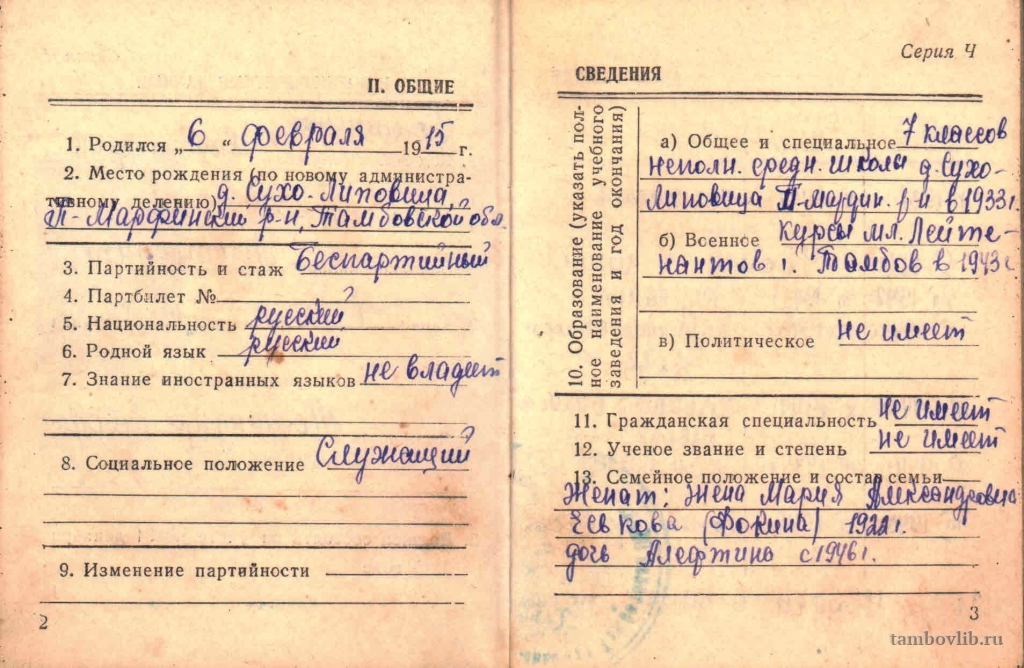 II. ОБЩИЕ
1. Родился „6“ февраля 1915 г.
2. Место рождения (по новому администра-
тивному делению) д. Сухо-Липовица,
П-Марфинский р-н, Тамбовской обл.
3. Партийность и стаж Беспартийный
4. Партбилет №
5. Национальность русский
6. Родной язык русский
7. Знание иностранных языков не владеет
8. Социальное положение Служащий
9. Изменение партийности
2
Серия Ч
СВЕДЕНИЯ
10. Образование (указать пол-
ное наименование учебного
заведения и год окончания)
а) Общее и специальное 7 классов
неполн. средн. школы д. Сухо-
Липовица П-Марфин. р-н в 1933 г.
б) Военное курсы мл. Лейте-
нантов г. Тамбов в 1943 г.
в) Политическое не имеет
11. Гражданская специальность не имеет
12. Ученое звание и степень не имеет
13. Семейное положение и состав семьи
Женат: жена Мария Александровна
(Фокина) 1922 г.
дочь Алефтина с 1946 г.
3
tambovlib.ru